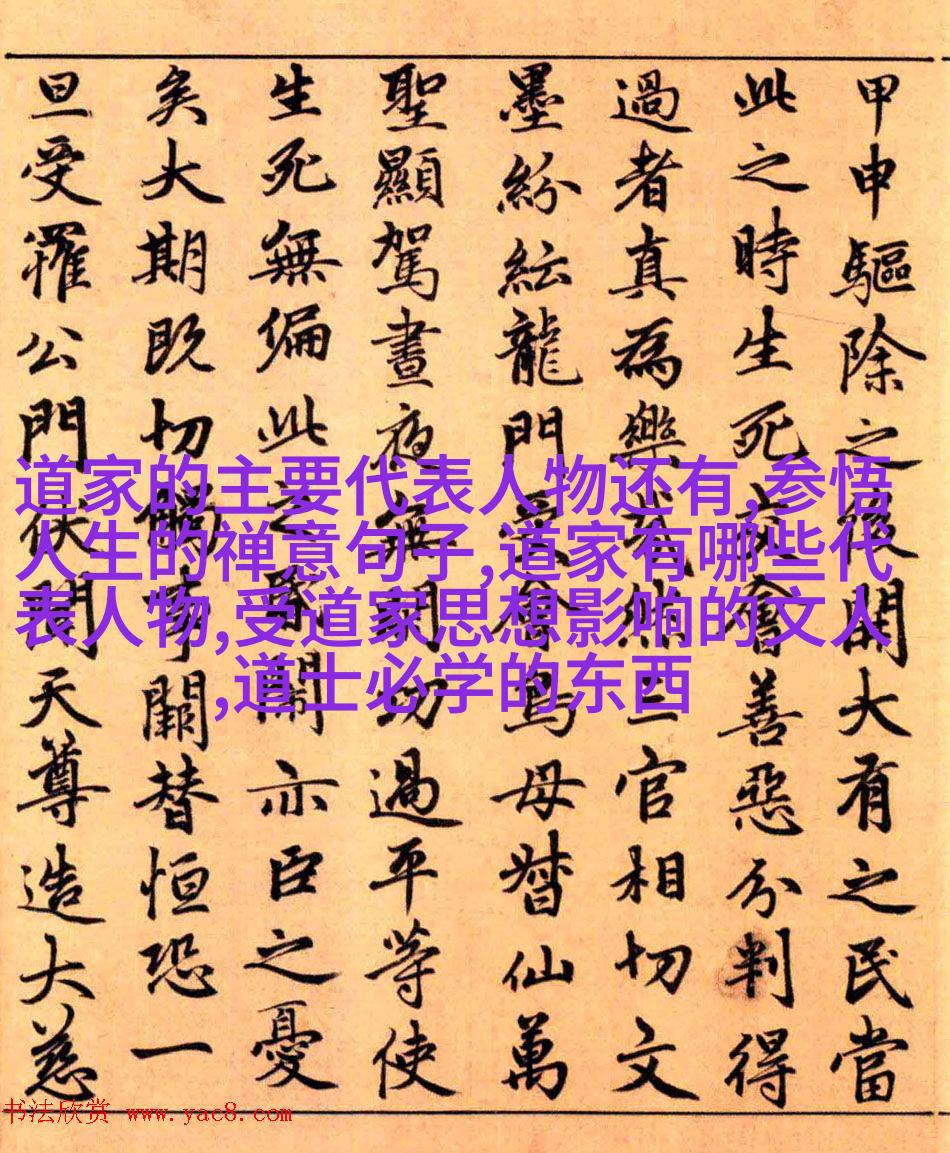 甲申驅除之後開大有之民當
此之時生死會善惡分判得
過者真為樂哉三官相切文
墨紛紜龍門受會鳥母督仙萬
聖顯駕晝夜無閒功過平等使
生死無偏此之關亦臣之憂
矣大期既切觸事闕替恒恐一
旦受罹公門伏聞天尊造大慈
道家的主要代表人物还有,参悟
人生的禅意句子,道家有哪些代
表人物,受道家思想影响的文人
,道士必学的东西
书法欣赏 www.yac8.com